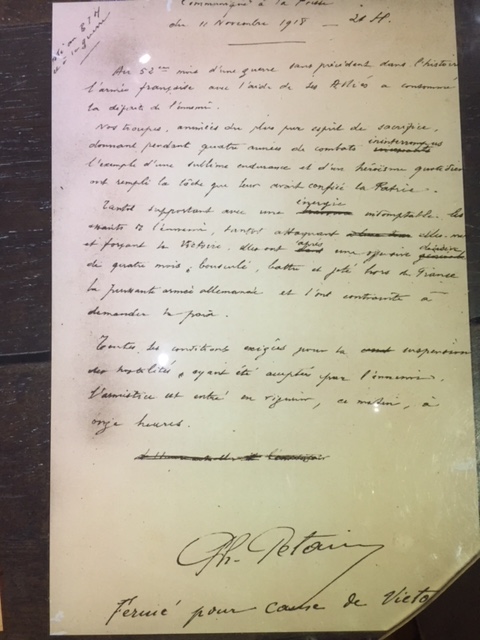 Communiqué à la Presse
du 11 Novembre 1918 — 21 H.
Au 52ème mois d'une guerre sans précédent dans l'histoire
l'armée française avec l'aide de ses Alliés a consommé
la défaite de l'ennemi.
Nos troupes, animées du plus pur esprit de sacrifice,
donnant pendant quatre années de combats ininterrompus
l'exemple d'une sublime endurance et d'un héroïsme quotidien
ont rempli la tâche que leur avait confiée la Patrie.
Tantôt supportant avec une énergie indomptable les
assauts de l'ennemi, tantôt attaquant elles-
et forçant la Victoire, elles ont après une offensive décisive
de quatre mois, bousculé, battu et jeté hors de France
la puissante armée allemande et l'ont contrainte à
demander la paix.
Toutes les conditions exigées pour la suspension
des hostilités, ayant été acceptées par l'ennemi.
L'armistice est entré en vigueur, ce matin, à
onze heures.
Ph. Pétain
Fermé pour cause de Victo